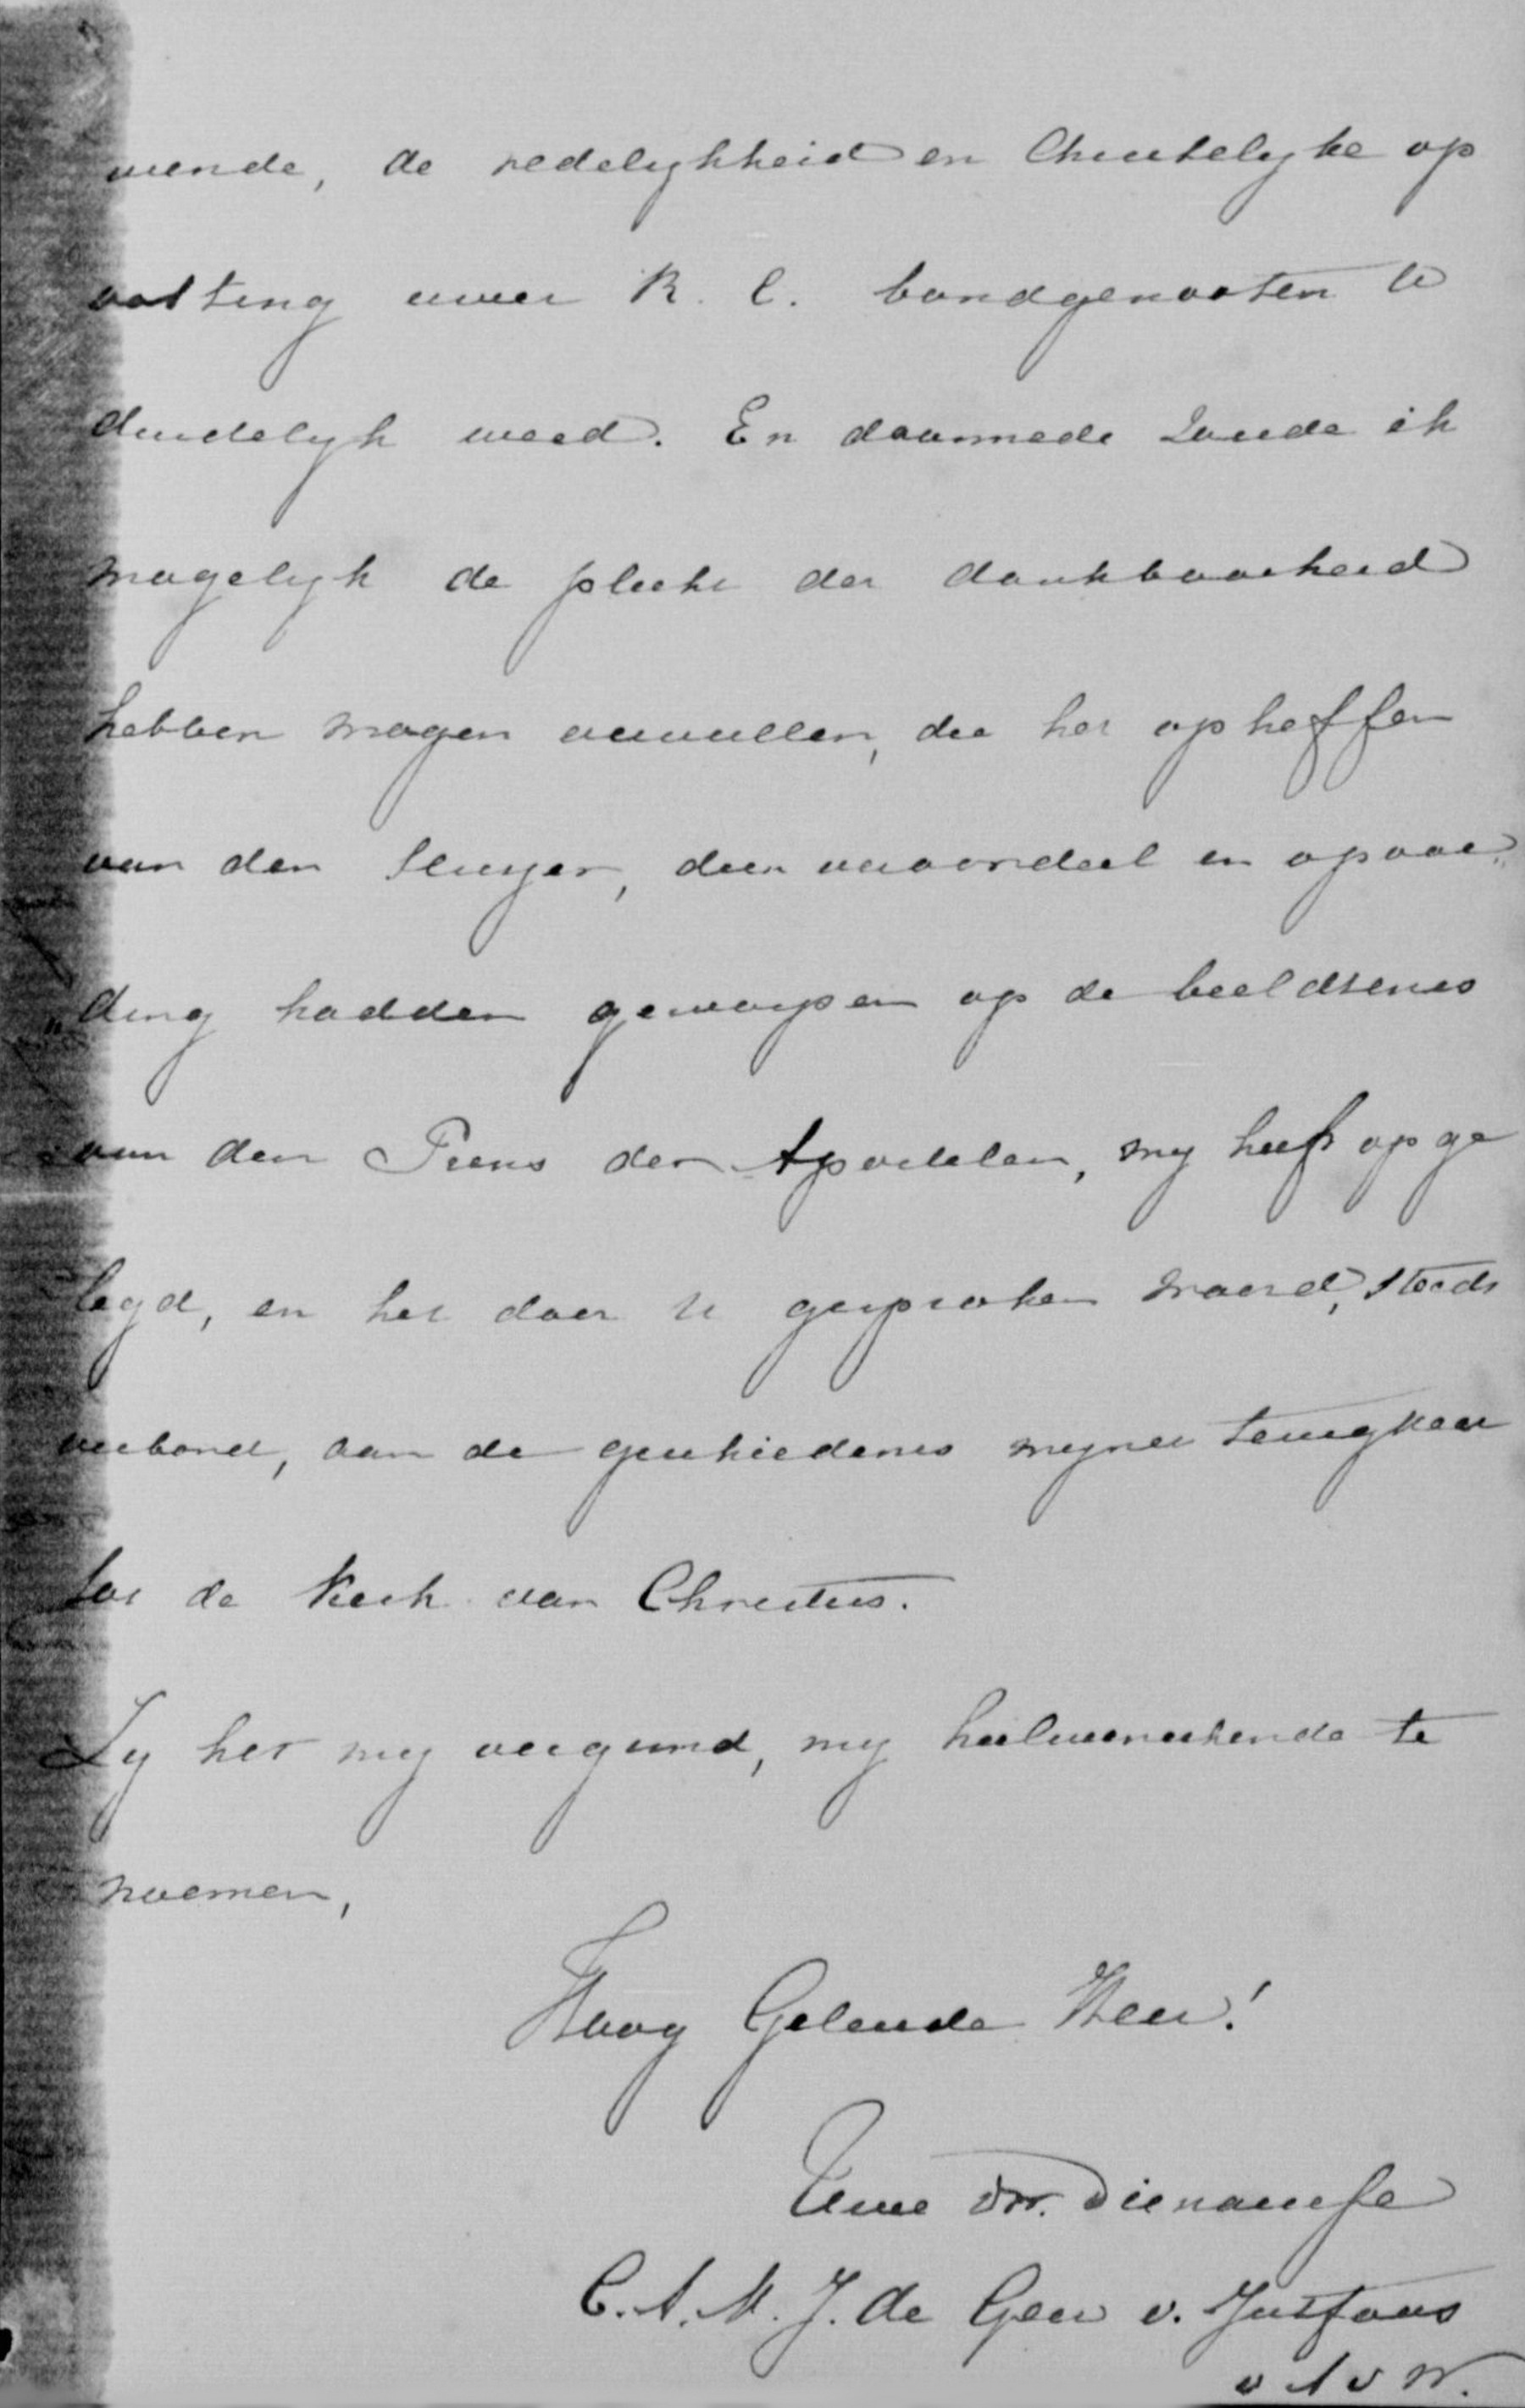 wende, de redelykheid en Christelyke op
vatting uwer R. C. bondgenooten U
duidelyk werd. En daarmede zoude ik
mogelyk de plicht der dankbaarheid
hebben mogen vervullen, die het opheffen
van den Sluyer, dien vooroordeel en opvoe„
„ding hadden geworpen op de beeldtenis
van den Prins der Apostelen, my heeft opge
legd, en het door U gesproken woord, steeds
verbond, aan de geschiedenis myner terugkeer
tot de Kerk van Christus.
Zy het my vergund, my heilwenschende te
noemen,
Hoog Geleerde Heer!
Uwe Dw. Dienaresse
C. A. M. J. de Geer v. Jutfaas
v A v W.